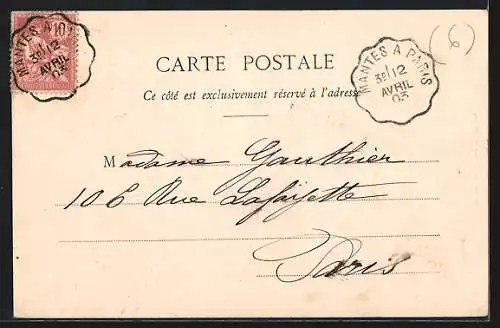 10
NANTES A
3º/12
AVRIL
03
NANTES A PARIS
3º/12
AVRIL
03
(6)
CARTE POSTALE
Ce côté est exclusivement réservé à l'adresse
Madame Gauthier
106 Rue Lafayette
Paris